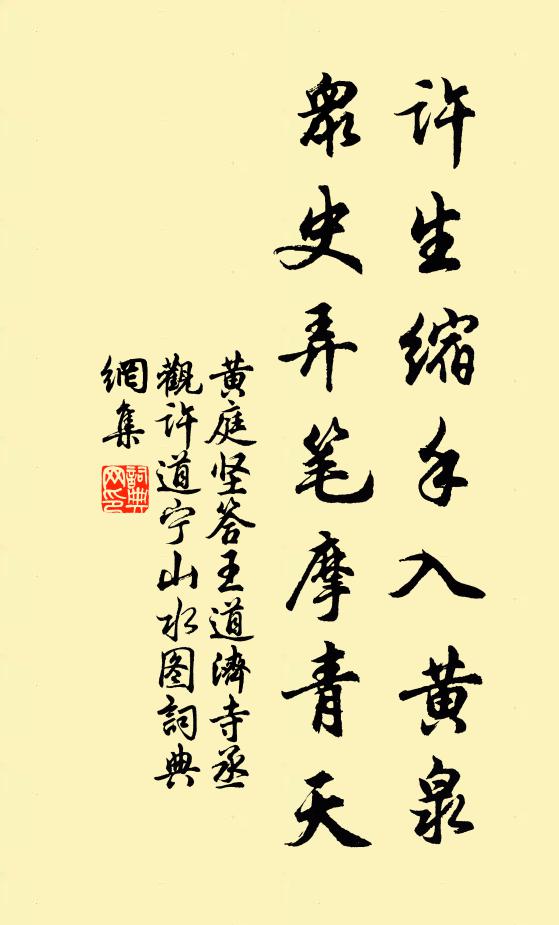 许生缩手入黄泉
众史弄笔摩青天
黄庭坚答王道濟寺丞
觀许道宁山水图詞典
網集
詞典网印